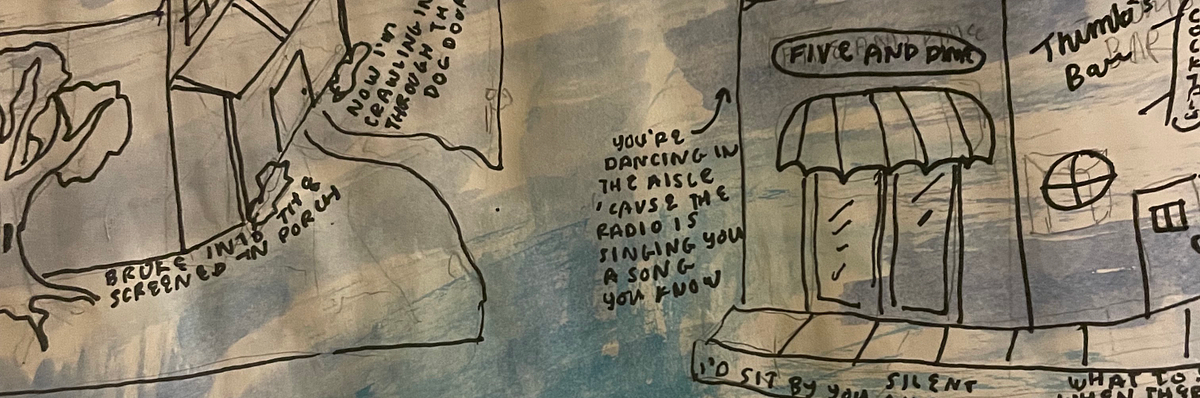 NOW I'M
CRAWLING IN
THROUGH TH
DOG DOOR
BROKE INTO THE
SCREENED IN PORCH
YOU'RE
DANCING IN
THE AISLE
'CAUSE THE
RADIO IS
SINGING YOU
A SONG
YOU KNOW
FIVE AND DIME
Thumbs
Bar
I'D SIT BY YOU SILENT
WHAT TO
WHEN THE